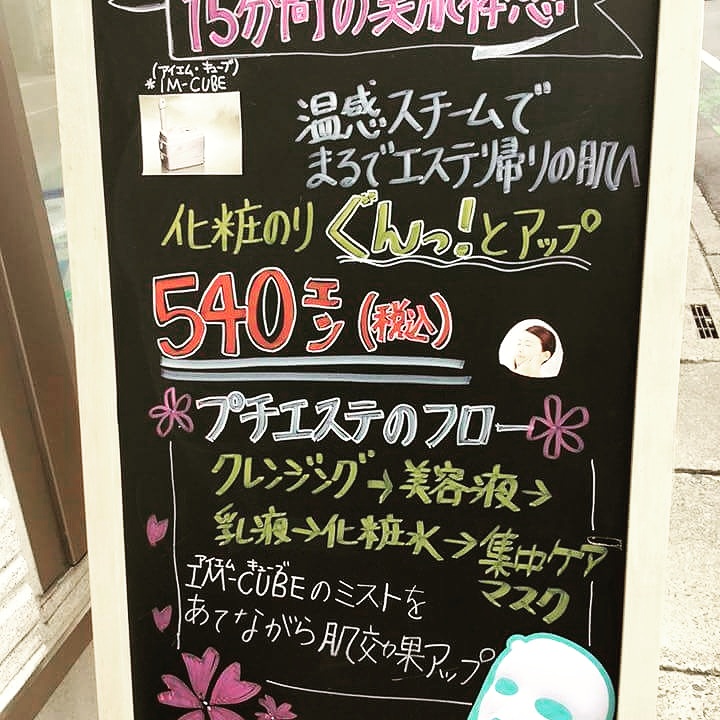 15分間の美肌体感
(アイエム・キューブ)
*IM-CUBE
温感スチームで
まるでエステ帰りの肌へ
化粧のりぐんっ!とアップ
540エン(税込)
プチエステのフロー
クレンジング→美容液→
乳液→化粧水→集中ケア
マスク
アイエム キューブ
IM-CUBEのミストを
あてながら肌効果アップ